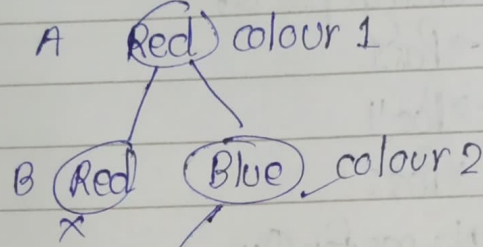 A Red colour 1
B Red Blue colour 2
x